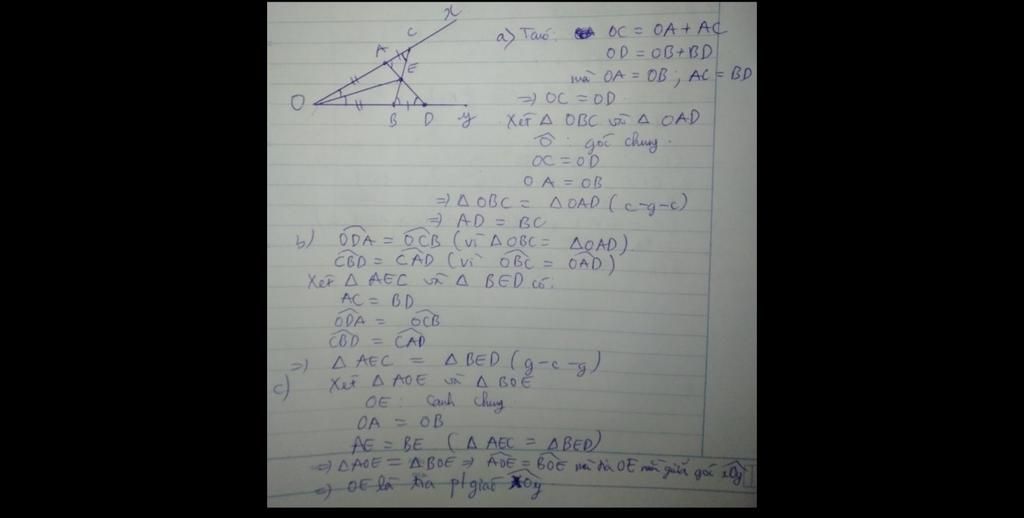 x
C
A
E
O
B D y
a) Ta có: OC = OA + AC
OD = OB + BD
mà OA = OB ; AC = BD
⇒ OC = OD
Xét Δ OBC và Δ OAD
Ô : góc chung.
OC = OD
OA = OB
⇒ Δ OBC = Δ OAD (c-g-c)
⇒ AD = BC
b) ODA = OCB (vì Δ OBC = Δ OAD)
CBD = CAD (vì OBC = OAD)
Xét Δ AEC và Δ BED có:
AC = BD
ODA = OCB
CBD = CAD
⇒ Δ AEC = Δ BED (g-c-g)
c) Xét Δ AOE và Δ BOE
OE : cạnh chung
OA = OB
AE = BE (Δ AEC = Δ BED)
⇒ Δ AOE = Δ BOE ⇒ AOE = BOE mà tia OE nằm giữa góc xOy
⇒ OE là tia p/giác xOy